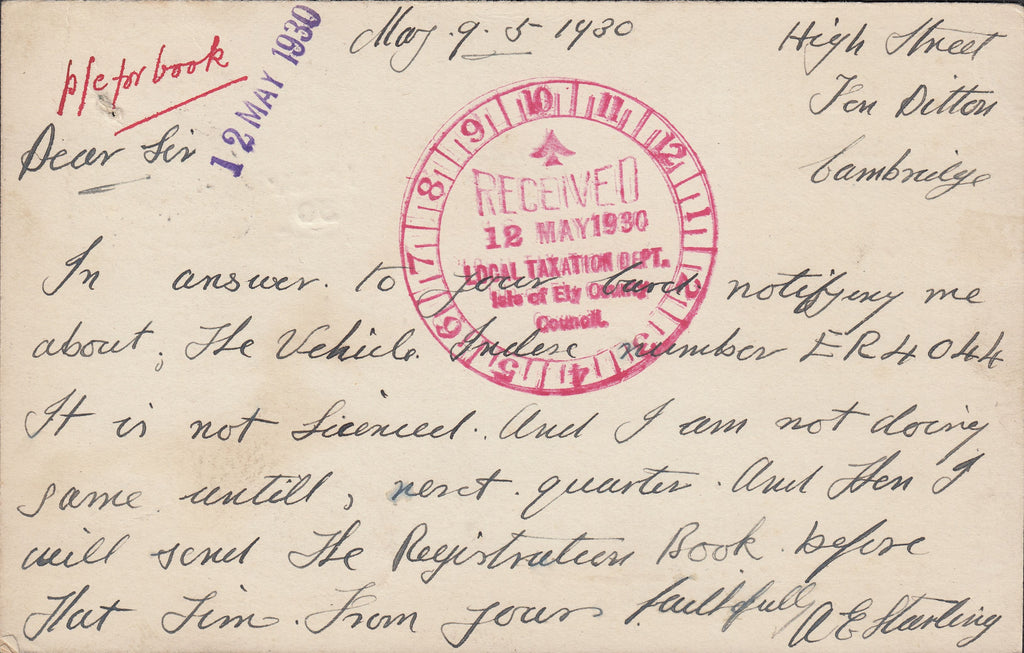 May. 9. 5 1930
High Street
Fen Ditton
Cambridge
p/c for book
12 MAY 1930
Dear Sir
10 11 12 1 2 3 4 5 6 7 8 9
RECEIVED
12 MAY 1930
LOCAL TAXATION DEPT.
Isle of Ely County
Council.
In answer. to your card notifying me
about, The Vehicle. Index number ER4044
It is not Licenced. And I am not doing
same untill, next. quarter. And then I
will send The Registration Book. before
That Time. From yours faithfully
A E Starling